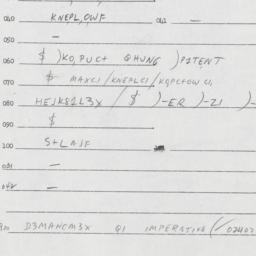 040 KNEPL,OWF 041 —
050 —
060 $ )KO,PUC+ QHUNG )PITENT
070 $ MAXCI/KNEPLCI/KOPCFOW CI,
080 HEJKS1L3X /$ )-ER )-ZI )-
090 $
100 S+LAJF
—
042 —
D3MANCM3X QI IMPERATING (/02402